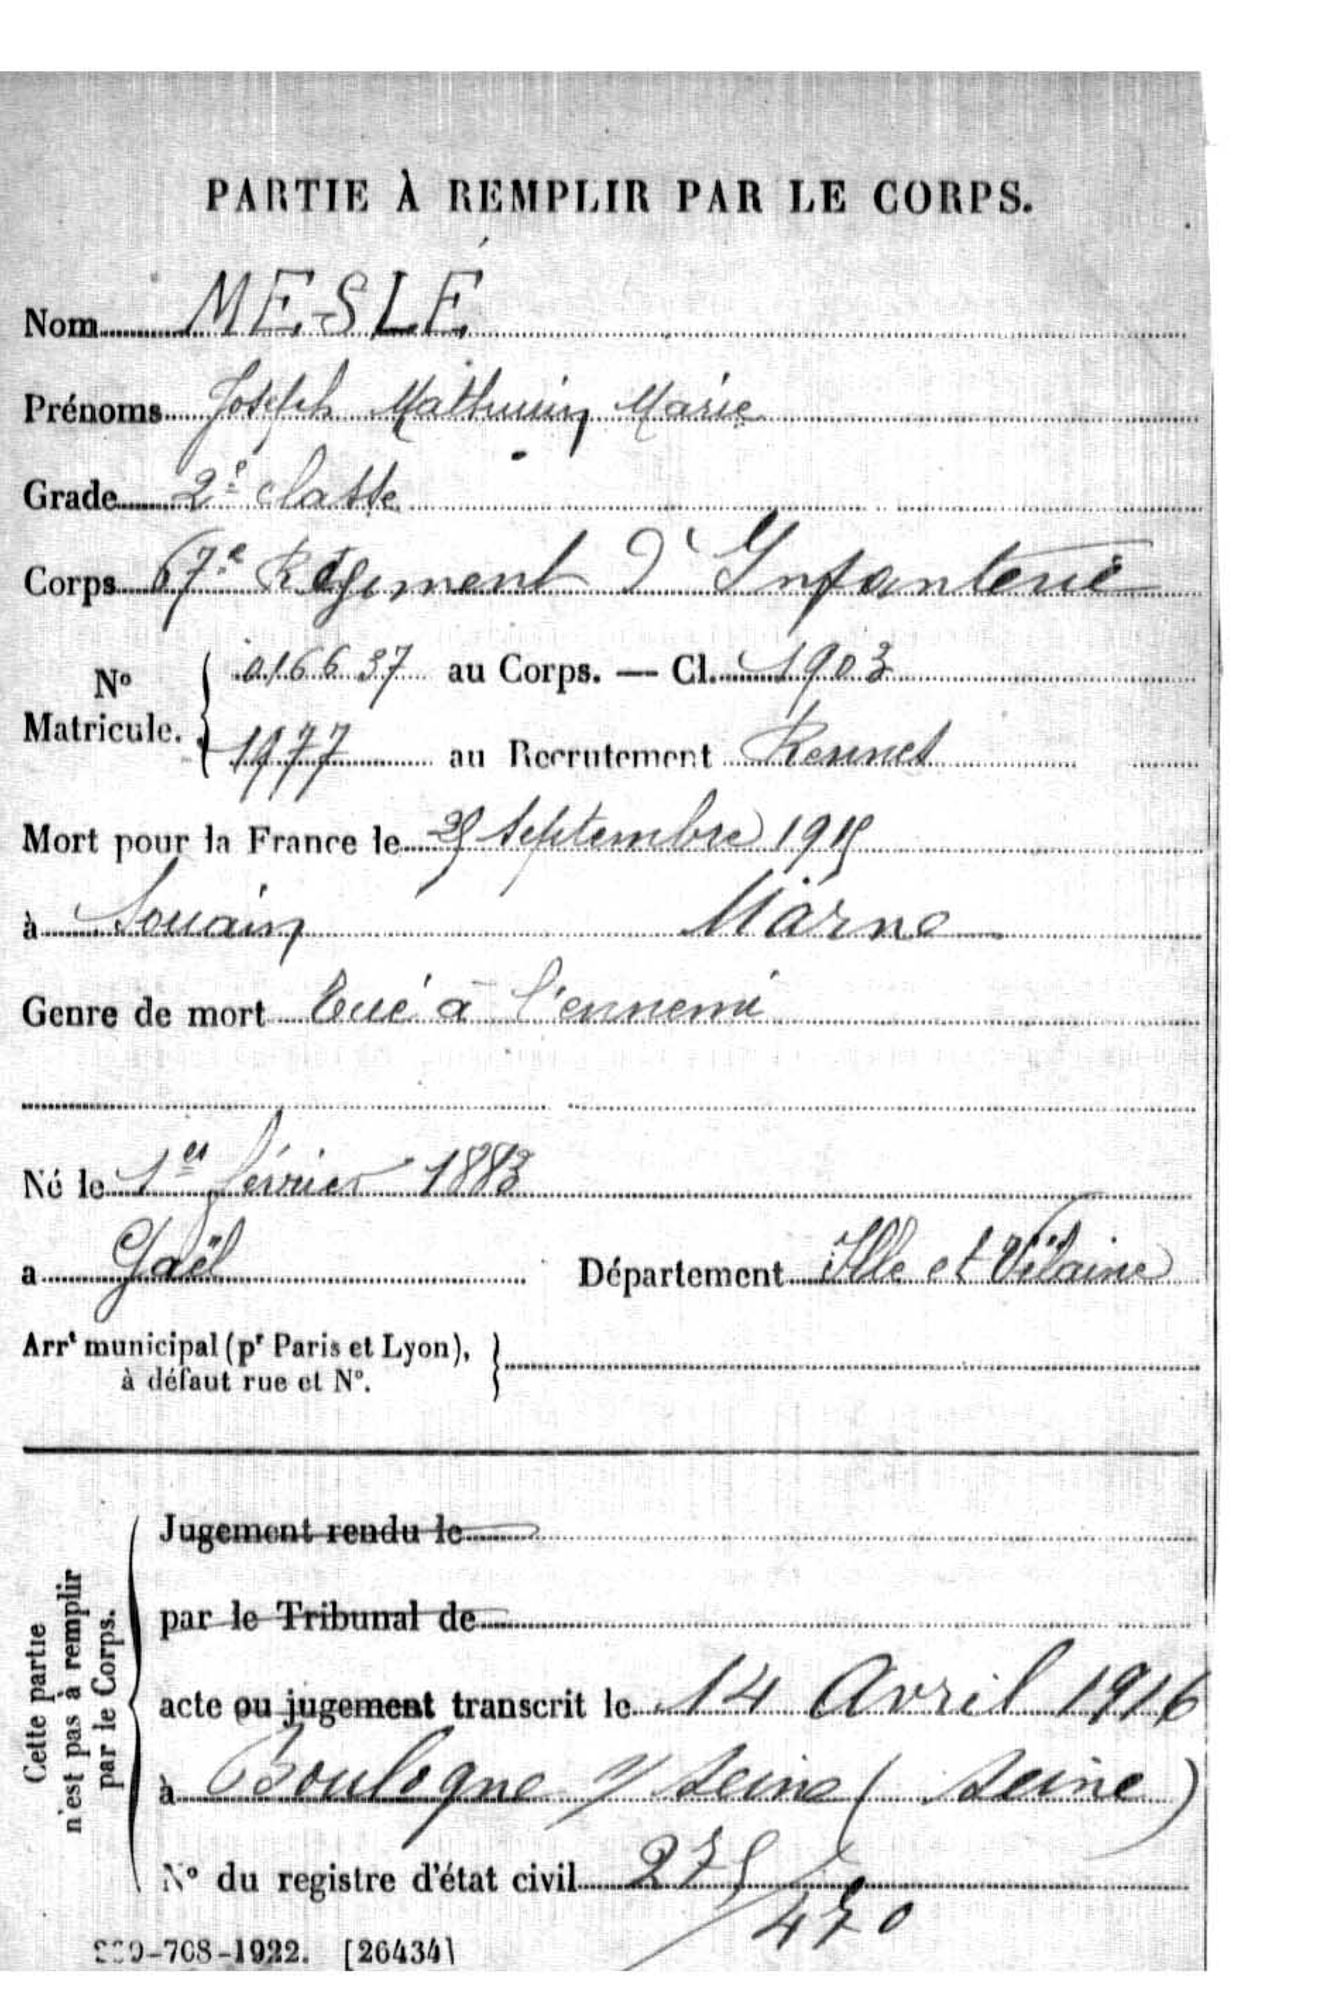 PARTIE À REMPLIR PAR LE CORPS.
Nom MESLÉ
Prénoms Joseph Mathurin Marie
Grade 2e classe
Corps 67e Régiment d'Infanterie
No Matricule. 016637 au Corps. — Cl. 1903
1977 au Recrutement Rennes
Mort pour la France le 25 septembre 1915
à Souain Marne
Genre de mort Tué à l'ennemi
Né le 1er février 1883
a Gaël Département Ille et Vilaine
Arrt municipal (pr Paris et Lyon),
à défaut rue et No.
Cette partie
n'est pas à remplir
par le Corps.
Jugement rendu le
par le Tribunal de
acte ou jugement transcrit le 14 Avril 1916
à Boulogne s/ Seine (Seine)
No du registre d'état civil 275
/470
-708-1922. [26434]